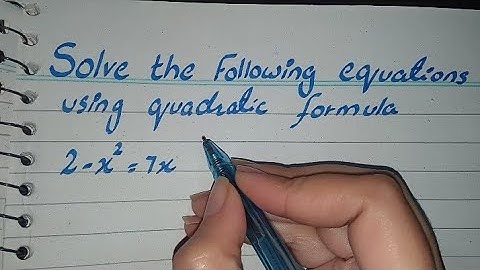 Solve the Following equations
using quadratic formula
2-x²=7x